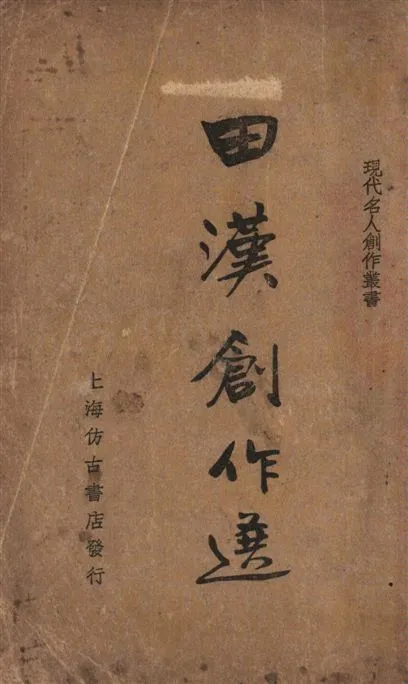 現代名人創作叢書
田漢創作選
上海仿古書店發行